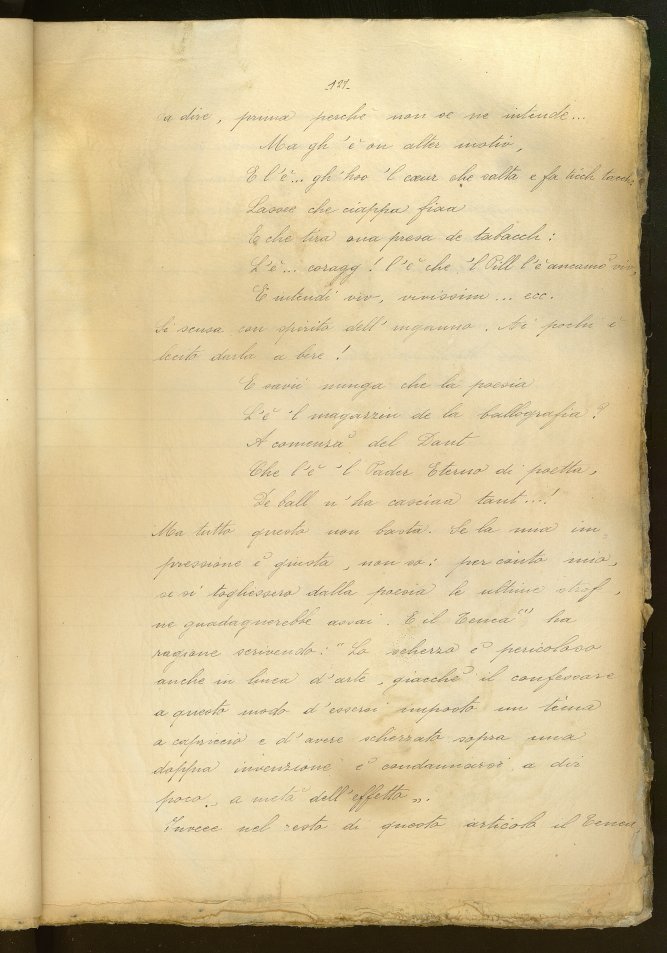 -127-
a dire, prima perchè non se ne intende...
Ma gh'è on alter motiv,
E l'è... gh'hoo 'l cœur che salta e fa tich tacch
Lassee che ciappa fiaa
E che tira ona presa de tabacch:
L'è... coragg! l'è che 'l Pill l'è ancamò viv,
E intendi viv, vivissim... ecc.
Si scusa con spirito dell'inganno. Ai pochi è
lecito darla a bere!
E savii nunga che la poesia
L'è 'l magazzin de la ballografia?
A comenzà del Dant
Che l'è 'l Pader Eterno di poetta,
De ball n'ha casciaa tant...!
Ma tutto questo non basta. Se la mia im-
pressione è giusta, non so: per conto mio,
se si togliessero dalla poesia le ultime strof,
ne guadagnerebbe assai. E il Tenca ha
ragione scrivendo: "Lo scherzo è pericoloso
anche in linea d'arte, giacchè il confessare
a questo modo d'essersi imposto un tèma
a capriccio e d'avere scherzato sopra una
doppia invenzione è condannarsi a dir
poco, a metà dell'effetto".
Invece nel resto di questo articolo il Tenca,